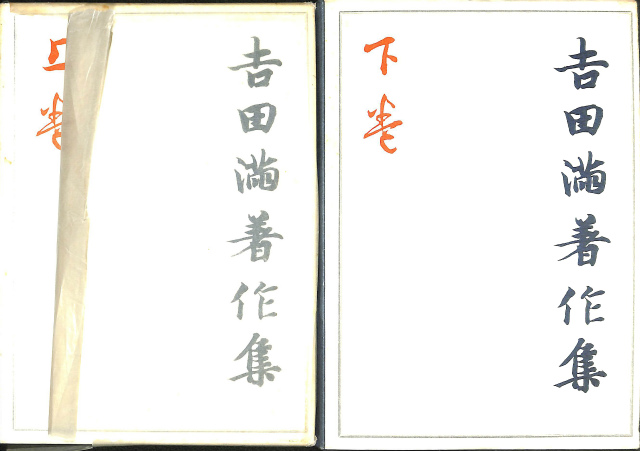 吉田満著作集
上巻
吉田満著作集
下巻